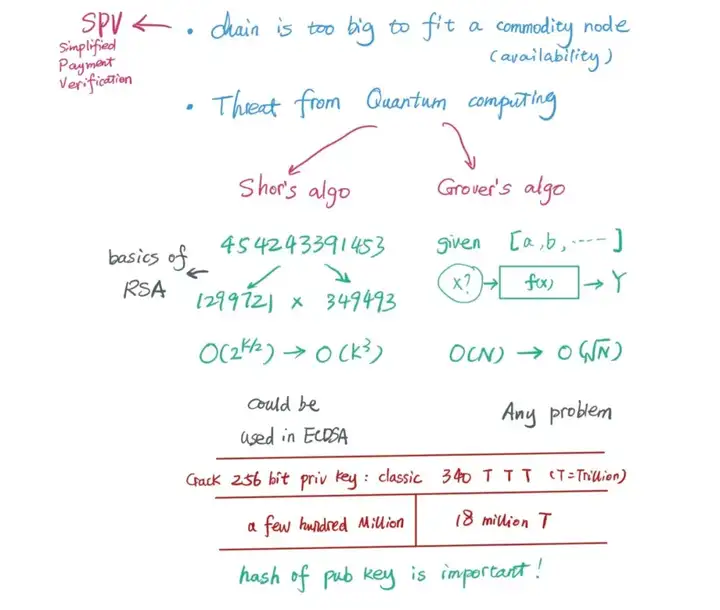 SPV ← • chain is too big to fit a commodity node
Simplified
Payment
Verification
(availability)
• Threat from Quantum computing
Shor's algo
Grover's algo
basics of
RSA
454243391453
1299721 x 349493
O(2^k/2) → O(k^3)
given [a, b, -----]
x? → f(x) → Y
O(N) → O(√N)
could be
used in ECDSA
Any problem
Crack 256 bit priv key : classic 340 T T T (T=Trillion)
a few hundred Million
18 million T
hash of pub key is important!